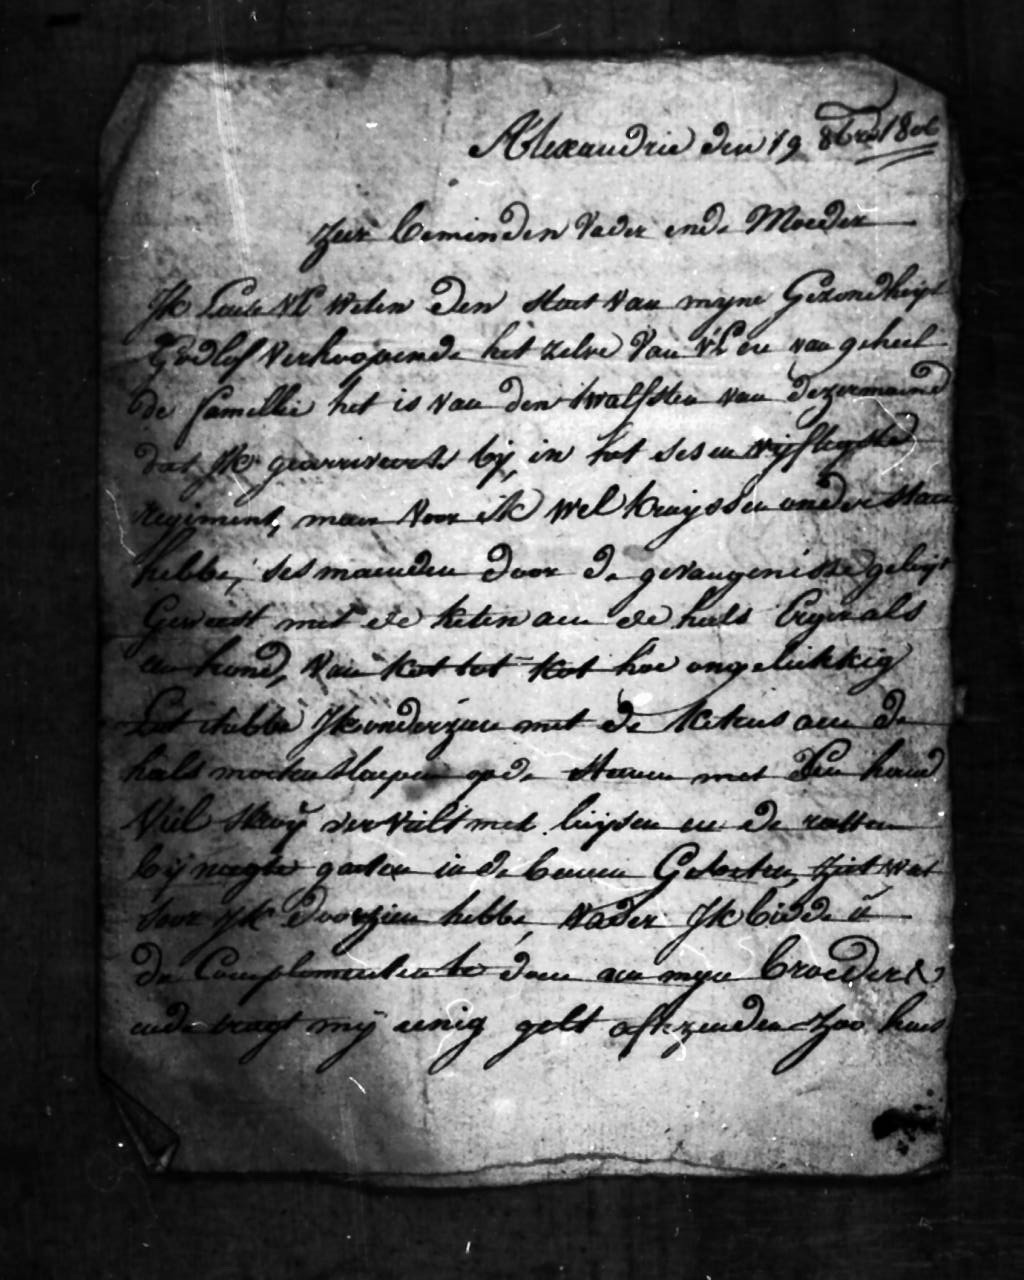 Alexandrie den 19 8bre 1806
Zeer beminden Vader ende Moeder
Ik Laete VL weten den staet van myne Gezondheyt
Godlof verhoopende het zelve van VL en van geheel
de famellie het is van den twalfsten van dezer maend
dat Ik gearriveert by, in het ses en vyftigste
regiment, maer voor ik wel kruyssen onderstaen
hebbe, ses maenden door de gevangenisse geleyt
Geweest met de keten aen de hals Erger als
en hond, van kot tot kot hoe ongelukkig
Lot hebbe Ik onderzien met de ketens aen de
hals moeten slaepen op de steenen met Een hand
Viel stroy vervult met luysen en de ratten
by naegte gaeten in de beenen Gebeeten, ziet wat
door Ik doorzien hebbe, vader Ik bidde u
de Complementen te doen aen myn broeders
ende vragt my eenig gelt af te zenden zoo haes